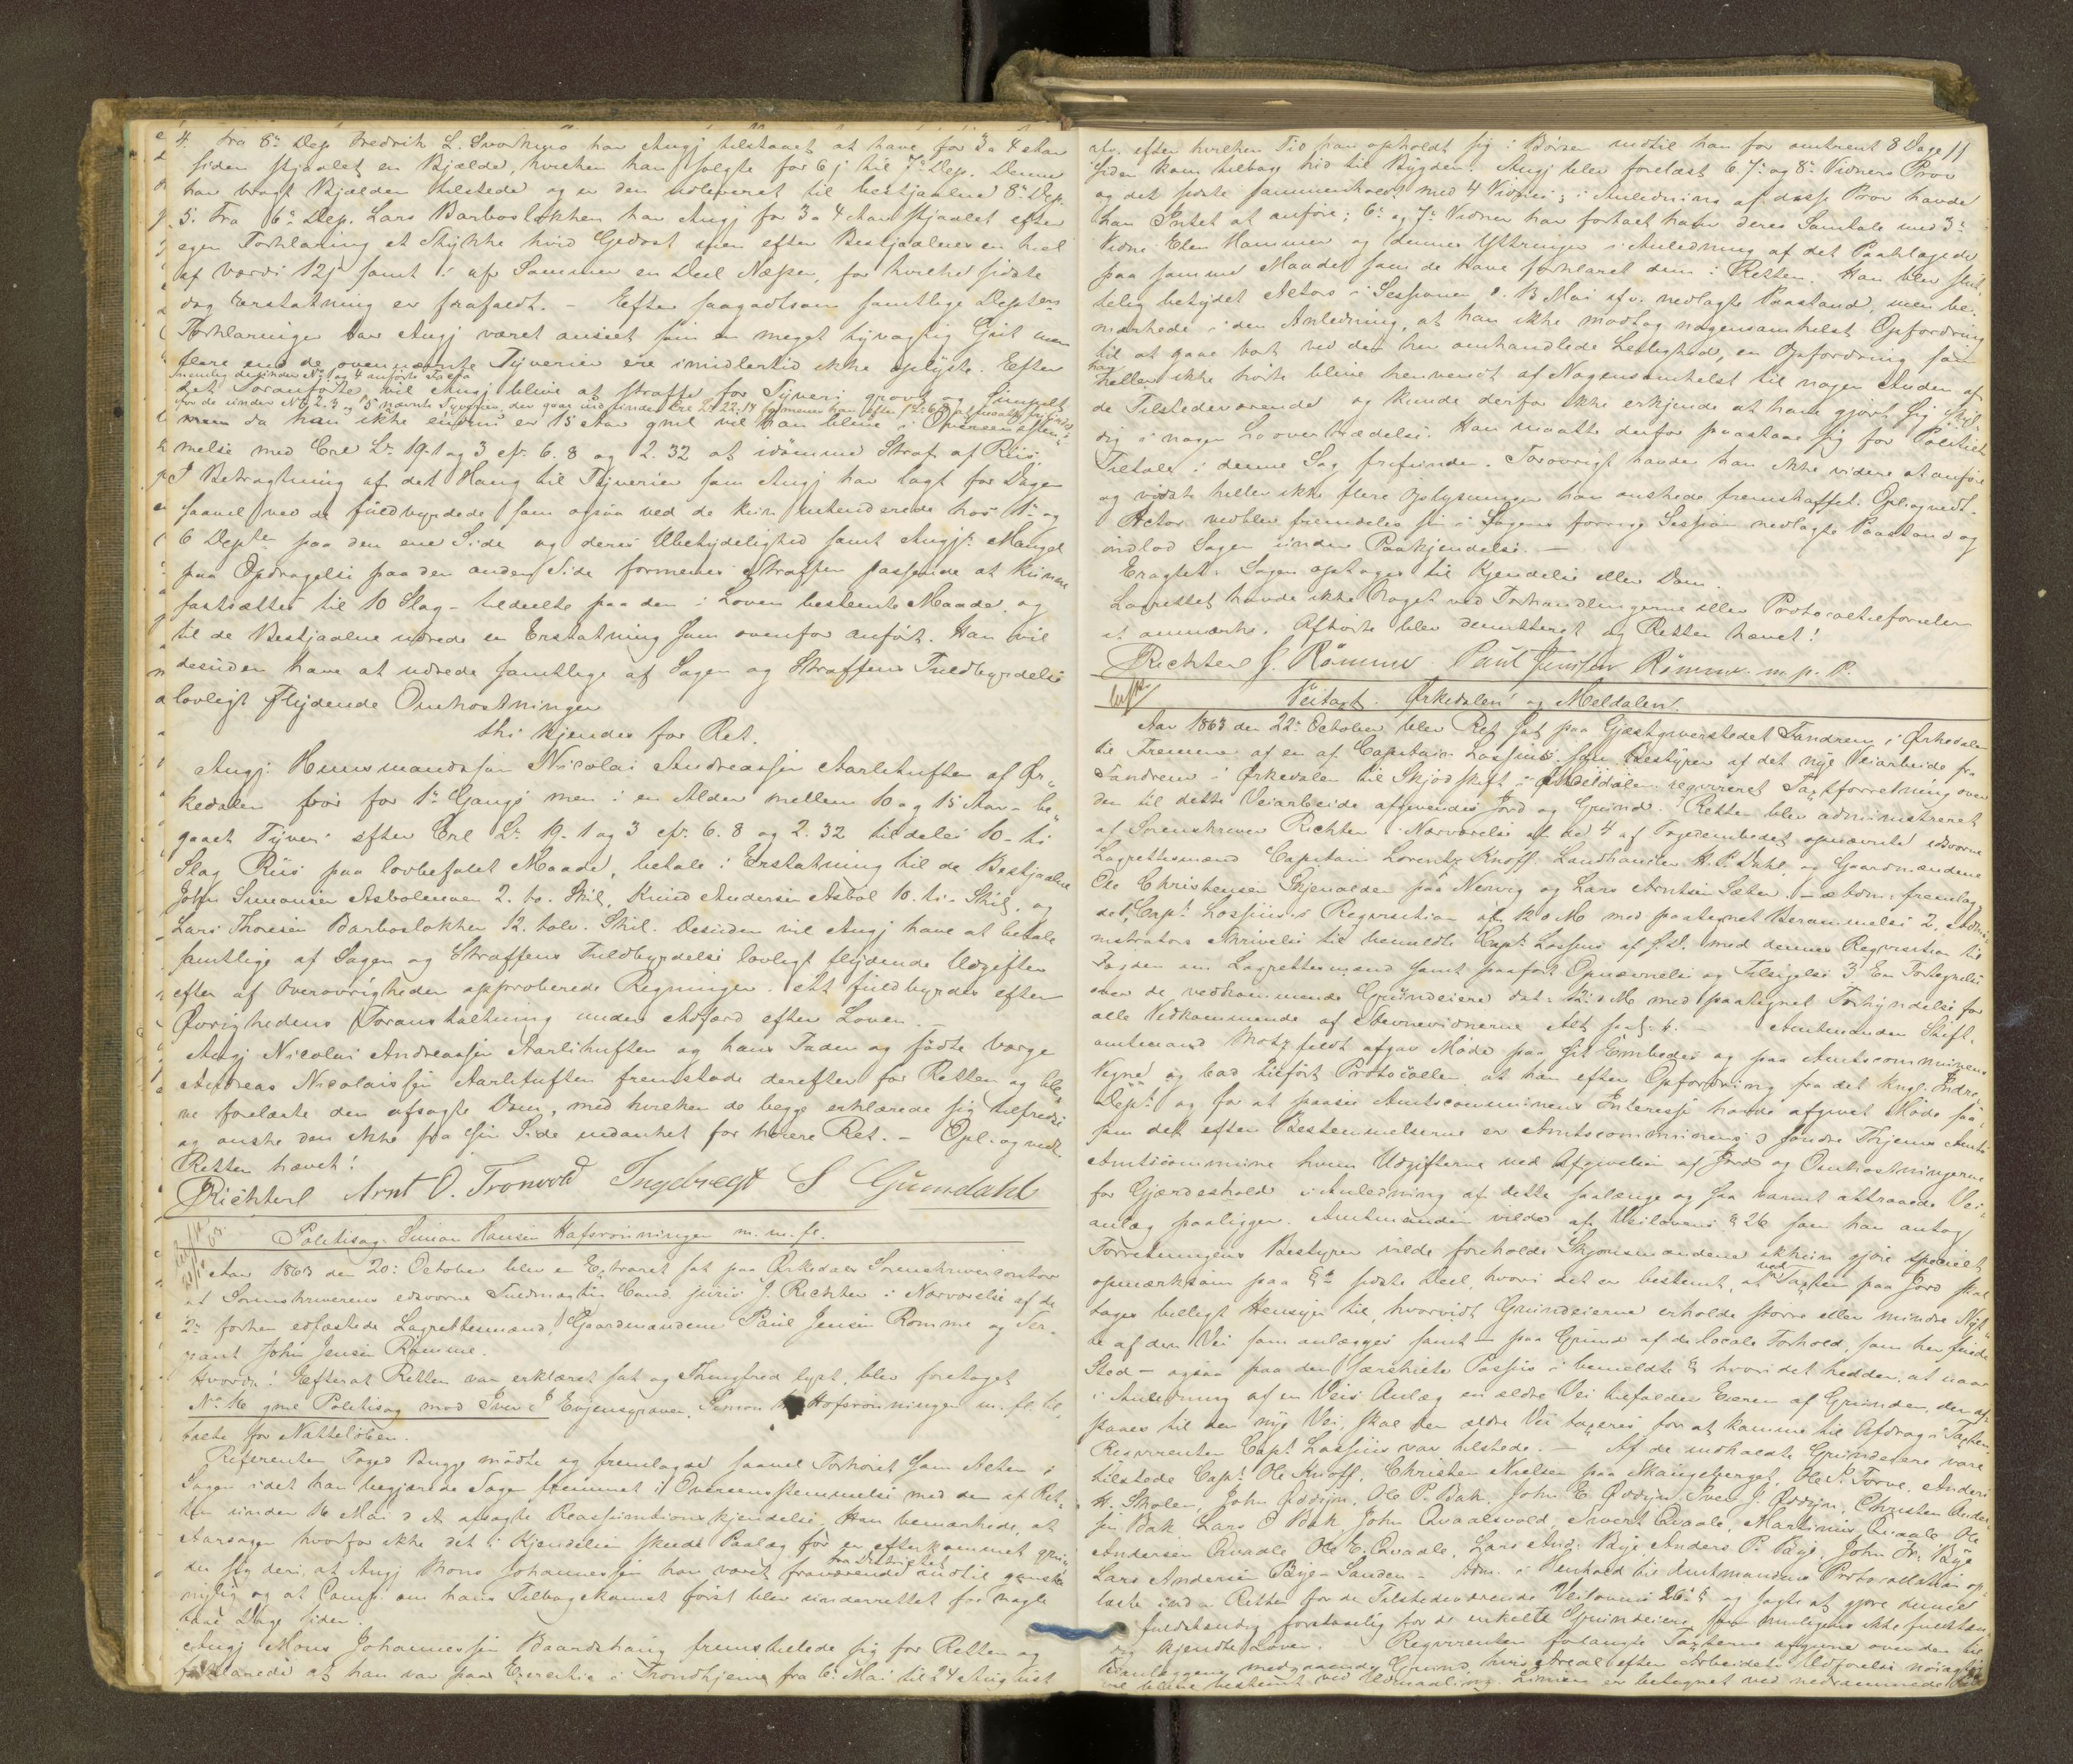 4. Fra 8de Dep. Fredrik L. Svorkmo har Angj tilstaaet at have for 3 a 4 Aar
siden stjaalet en Bjælde, hvilken han solgte for 6 j til 7de Dep. Denne
har bragt Bjælden tilstede og er den udleveret til bestjaalne 8de Dep.
5. Fra 6te Dep. Lars Barbosløkken har Angj for 3 a 4 Aar stjaalet efter
egen Forklaring et Stykke hvid Gedost men efter Bestjaalnes en heel
af Værdi 12 j samt i afv. Sommer en Deel Næper, for hvilke sidste
dog Erstatning er frafaldt. - Efter saagodtsom samtlige Depters
Forklaringer har Angj været anseet som en meget tyvagtig Gut men
flere end de ovennævnte Tyverier ere imidlertid ikke oplyste. Efter
det Foranførte vil Angj blive at straffe for Tyveri grovt og simpelt
men da han ikke endnu er 15 Aar gml vil han blive i Overeensstem-
melse med Crl Lv 19-1 og 3 cfr. 6. 8 og 2.32 at idømme Straf af Riis.
I Betragtning af det Hang til Tyverier som Angj har lagt for Dagen
saavel ved de fuldbyrdede som ogsaa ved de kun intenderede hos 1ste og
6 Depter paa den ene Side og deres Ubetydelighed samt Angjs Mangel
paa Opdragelse paa den anden Side formenes Straffen passende at kunne
fastsættes til 10 Slag - tildeelte paa den i Loven bestemte Maade, og
til de Bestjaalne udrede en Erstatning som ovenfor anført. Han vil
desuden have at udrede samtlige af Sagen og Straffens Fuldbyrdelse
lovligt flydende Omkostninger
thi kjendes for Ret.
Angj. Huusmandssøn Nicolai Andreassen Aarlituften af Ør-
kedalen bør for 1ste Gangs men i en Alder mellem 10 og 15 Aar - be-
gaaet Tyveri efter Crl Lv. 19-1 og 3 cfr. 6. 8 og 2.32 tildeles 10 - ti
Slag Riis paa lovbefalet Maade, betale i Erstatning til de Bestjaalne
John Simonsen Asbolmoen 2. to. Skil, Knud Andersen Asbøl 10. ti. Skil. og
Lars Thoresen Barbosløkken 12. tolv. Skil. Desuden vil Angj have at betale
samtlige af Sagen og Straffens Fuldbyrdelse lovligt flydende Udgifter
efter af Overøvrigheden approberede Regninger. At fuldbyrdes efter
Øvrighedens Foranstaltning under Adfærd efter Loven. -
Angj Nicolai Andreassen Aarlituften og hans Fader og fødte Værge
Andreas Nicolaissen Aarlituften fremstode derefter for Retten og ble-
ve forelæste den afsagte Dom, med hvilken de begge erklærede sig tilfredse
og ønske den ikke fra sin Side indanket for høiere Ret. - Opl. og vedt.
Retten hævet!
Richter Arnt O. Tronvold Ingebregt S Gumdahl
Politisag. Simon Hansen Hafsrønningen m. m. fl.
Aar 1863 den 20: October blev en Extraret sat paa Ørkedals Sorenskrivercontor
af Sorenskriverens edsvorne Fuldmægtig Cand. juris J. Richter i Nærværelse af de
2de forhen edfæstede Lagrettesmænd, Gaardmændene Paul Jensen Rømme og Ser-
geant John Jensen Rømme.
Hvorda! Efterat Retten var erklæret sat og Thingfred lyst, blev foretaget
No 16 gml Politisag mod Iver J Evjensgraven, Simon H. Hofsrønningen m. fl. til-
talte for Natteløben.
Referenten Foged Bugge mødte og fremlagde saavel Forhøret som Acten i
Sagen idet han begjærede Sagen fremmet i Overeensstemmelse med den af Ret-
ten under 16 Mai d. A afsagte Reassumtionskjendelse. Han bemærkede, at
Aarsagen hvorfor ikke det i Kjendelsen skeede Paalæg før er efterkommet grun-
der sig deri, at Angj Mons Johannessen har været fraværende fra Districtet indtil ganske
nylig og at Comp. om hans Tilbagekomst først blev underrettet for nogle
faae Dage siden.
Angj Mons Johannessen Baardshaug fremstillede sig for Retten og
forklarede at han var paa Exercitie i Trondhjem fra 6te Mai til 24 August
11
afv. efter hvilken Tid han opholdt sig i Børsen indtil han for omtrent 8 Dage
siden kom tilbage hid til Bygden. Angj blev forelæst 6. 7de og 8de Vidners Prov
og det sidste sammenholdt med 4 Vidnes; i Anledning af disse Prov havde
han Intet at anføre; 6te og 7de Vidner har fortalt ham deres Samtale med 3die
Vidne Elen Hammer og dennes Yttringer i Anledning af det Paaklagede
paa samme Maade som de have forklaret dem i Retten. Han blev til-
delig betydet Actors i Sessionen d. 13 Mai afv. nedlagte Paastand, men be-
mærkede i den Anledning, at han ikke modtog nogensomhelst Opfordring
til at gaae bort ved den her omhandlede Leilighed, en Opfordring som
han heller ikke hørte blive henvendt af Nogensomhelst til nogen Anden af
de Tilstedeværende og kunde derfor ikke erkjende at have gjort sig skyl-
dig i nogen Lovovertrædelse. Han maatte derfor paastaae sig for Politiets
Tiltale i denne Sag frifunden. Forøvrigt havde han ikke videre at anføre
og vidste heller ikke flere Oplysninger han ønskede fremskaffet. Opl. og vedt.
Actor vedblev fremdeles sin i Sagens forrige Session nedlagte Paastand og
indlod Sagen under Paakjendelse. -
Eragtet. Sagen optages til Kjendelse eller Dom.
Lagrettet havde ikke Noget ved Forhandlingerne eller Protocoltilførselen
at anmærke. Afhørte blev demitteret og Retten hævet!
Richter J. Rømme Paul Jensen Rømme. m. p. P.
Veitaxt. Ørkedalen og Meldalen.
Aar 1863 den 22de October blev Ret sat paa Gjæstgiverstedet Fandrem i Ørkedalen
til Fremme af en af Capitain Lossius som Bestyrer af det nye Veiarbeide fra
Fandrem i Ørkedalen til Skjødskift i Meldalen reqvireret Taxtforretning over
den til dette Veiarbeide afgivendes Jord og Grund. Retten blev administreret
af Sorenskriver Richter i Nærværelse af de 4 af Fogedembedet opnævnte edsvorne
Lagrettesmænd Capitain Lorentz Knoff, Landhandler H. P. Dahl, og Gaardmændene
Ole Christensen Skjenalden paa Nerwig og Lars Arntsen Sæter. - Adm. fremlag-
de 1, Capt. Lossius's Reqvisition af 12 d M med paategnet Berammelse 2, Admi-
nistrators Skrivelse til bemeldte Capt. Lossius af s. D. med dennes Reqvisition til
Fogden om Lagrettesmænd samt paaført Opnævnelse og Tilsigelse 3 En Fortegnelse
over de vedkommende Grundeiere dat. 12. d M med paategnet Forkyndelse for
alle Vedkommende af Stevnevidnerne Alt saal. t. - Amtmanden Stift-
amtmand Motzfeldt afgav Møde paa sit Embedes og paa Amtscommunens
Vegne og bad tilført Protocollen, at han efter Opfordring fra det kngl. Indre-
Dept og for at paasee Amtscommunens Interesse havde afgivet Møde saa-
som det efter Bestemmelserne er Amtscommunens o: Søndre Thjems Amts
Amtscommune hvem Udgifterne ved Afgivelsen af Jord og Omkostningerne
for Gjærdeshold i Anledning af dette saalænge og saa varmt attraaede Vei-
anlæg paaligger. Amtmanden vilde af Veilovens § 26 som han antog
Forretningens Bestyrer vilde foreholde Skjønsmændene alene gjøre specielt
opmærksom paa §s sidste Deel, hvori det er bestemt, at ved Taxten paa Jord skal
tages billigt Hensyn til, hvorvidt Grundeierne erholde større eller mindre Nyt-
te af den Vei som anlægges samt - paa Grund af de locale Forhold, som her finde
Sted - ogsaa paa den særskilte Passus i bemeldte § hvori det hedder, at naar
i Anledning af en Veis Anlæg en ældre Vei tilfalder Eieren af Grunden, der af-
staaes til den nye Vei, skal den ældre Vei taxeres for at komme til Afdrag i Taxten.
Reqvirenten Capt. Lossius var tilstede. - Af de indkaldte Grundeiere vare
tilstede Capt. Ole Knoff, Christen Nielsen paa Skaugebjerget, Ole P. Forve, Anders
H. Skolen, John Øddyn, Ole P. Bak, John E. Øddyn, Iver J. Øddyn, Christen Ander-
sen Bak, Lars O Bak, John Qvaalsvold, Sivert Qvaale, Martinus Qvaale, Ole
Andersen Qvaale, Ole E. Qvaale, Lars And. Bye, Anders P. Bye, John Fr. Bye
Lars Andersen Bye-Sanden - Adm. i Henhold til Amtmandens Protocollation op-
læste ind i Retten for de Tilstedeværende Veilovens 26de § og søgte at gjøre denne
fuldstændig forstaaelig for de enkelte Grundeiere, som muligens ikke fuldstæn-
dig kjendte Loven. Reqvirenten forlangte Taxterne afgivne over den til
Veianlæggene medgaaende Grund, hvis Areal efter Arbeidets Udførelse nøiagtig
vil blive bestemt ved Udmaaling. Linien er betegnet ved nedrammede